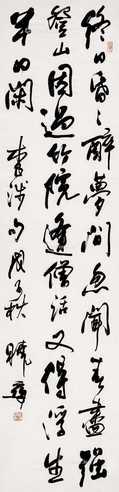 終日昏〻醉夢間忽聞春盡強
登山因過竹院逢僧話又得浮生
半日閑 李涉句 戊子秋